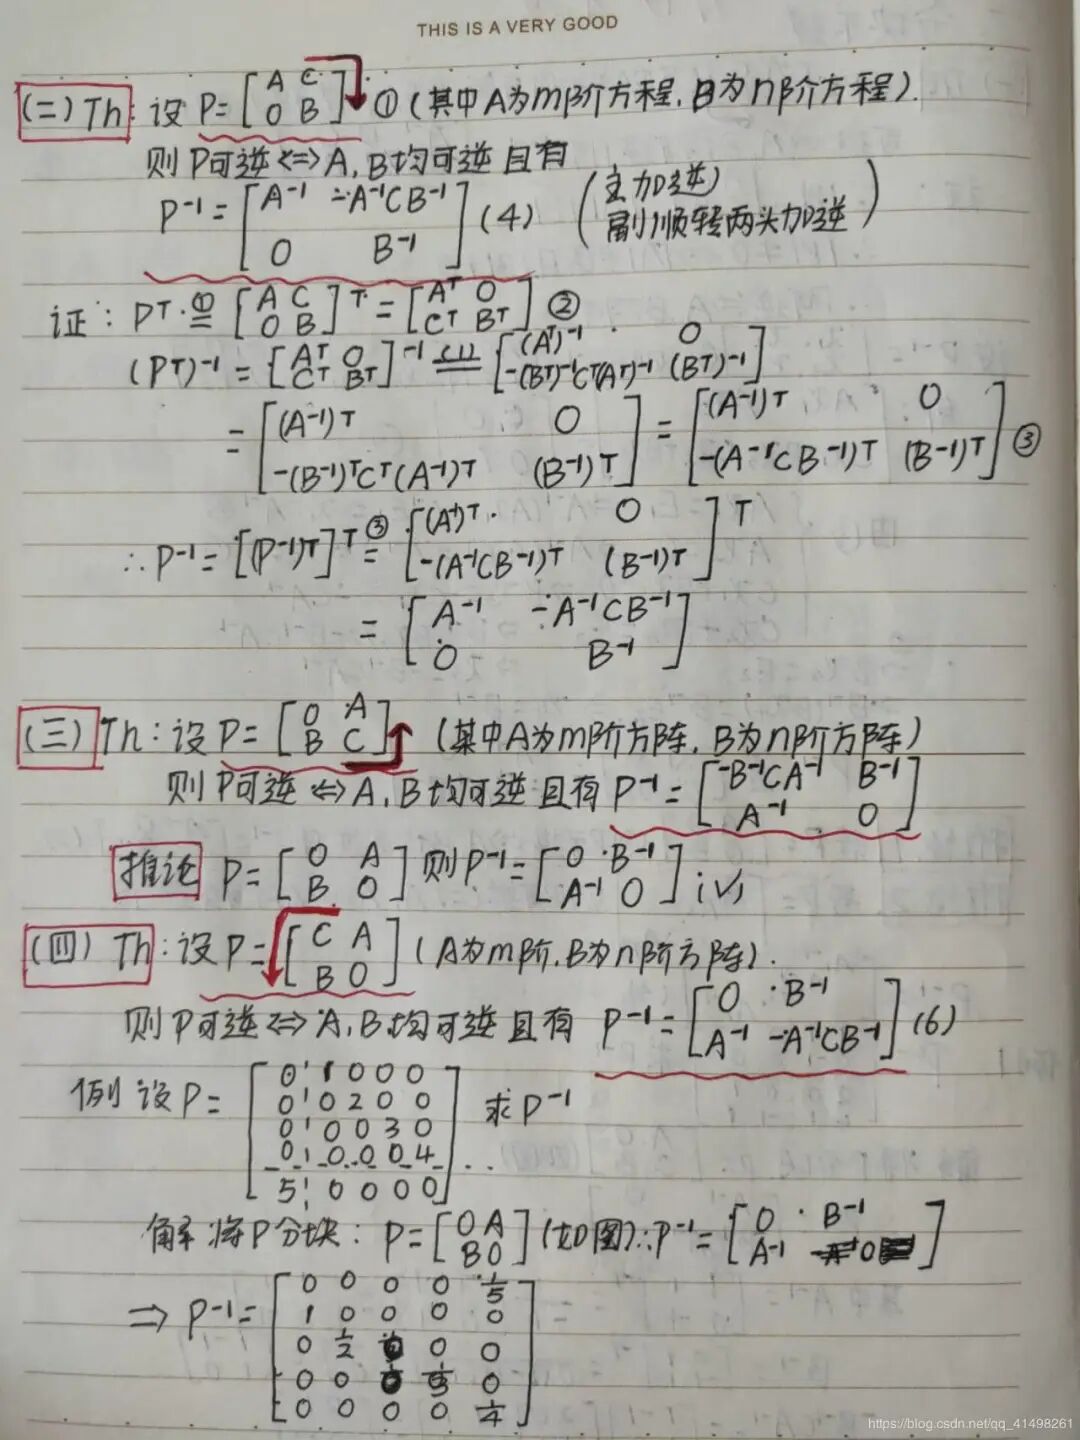 THIS IS A VERY GOOD
(二) Th: 设 P= [A C; O B] ① (其中A为m阶方程, B为n阶方程).
则 P可逆 <=> A, B均可逆 且有
P⁻¹ = [A⁻¹ -A⁻¹CB⁻¹; O B⁻¹] (4) (主加逆 副顺转两头加逆)
证: Pᵀ ①= [A C; O B]ᵀ = [Aᵀ O; Cᵀ Bᵀ] ②
(Pᵀ)⁻¹ = [Aᵀ O; Cᵀ Bᵀ]⁻¹ (1)= [(Aᵀ)⁻¹ O; -(Bᵀ)⁻¹Cᵀ(Aᵀ)⁻¹ (Bᵀ)⁻¹]
= [(A⁻¹)ᵀ O; -(B⁻¹)ᵀCᵀ(A⁻¹)ᵀ (B⁻¹)ᵀ] = [(A⁻¹)ᵀ O; -(A⁻¹CB⁻¹)ᵀ (B⁻¹)ᵀ] ③
∴ P⁻¹ = [(P⁻¹)ᵀ]ᵀ ③= [(A¹)ᵀ O; -(A⁻¹CB⁻¹)ᵀ (B⁻¹)ᵀ]ᵀ
= [A⁻¹ -A⁻¹CB⁻¹; O B⁻¹]
(三) Th: 设 P= [O A; B C] (其中A为m阶方阵, B为n阶方阵)
则 P可逆 <=> A, B均可逆 且有 P⁻¹ = [-B⁻¹CA⁻¹ B⁻¹; A⁻¹ O]
推论 P= [O A; B O] 则 P⁻¹ = [O B⁻¹; A⁻¹ O]
(四) Th: 设 P= [C A; B O] (A为m阶, B为n阶方阵).
则 P可逆 <=> A, B均可逆 且有 P⁻¹ = [O B⁻¹; A⁻¹ -A⁻¹CB⁻¹] (6)
例 设 P= [0 1 0 0 0; 0 0 2 0 0; 0 0 0 3 0; 0 0 0 0 4; 5 0 0 0 0] 求 P⁻¹
解: 将P分块: P= [O A; B O] (如图) ∴ P⁻¹ = [O B⁻¹; A⁻¹ O]
=> P⁻¹ = [0 0 0 0 1/5; 1 0 0 0 0; 0 1/2 0 0 0; 0 0 1/3 0; 0 0 0 0 1/4]
https://blog.csdn.net/qq_41498261